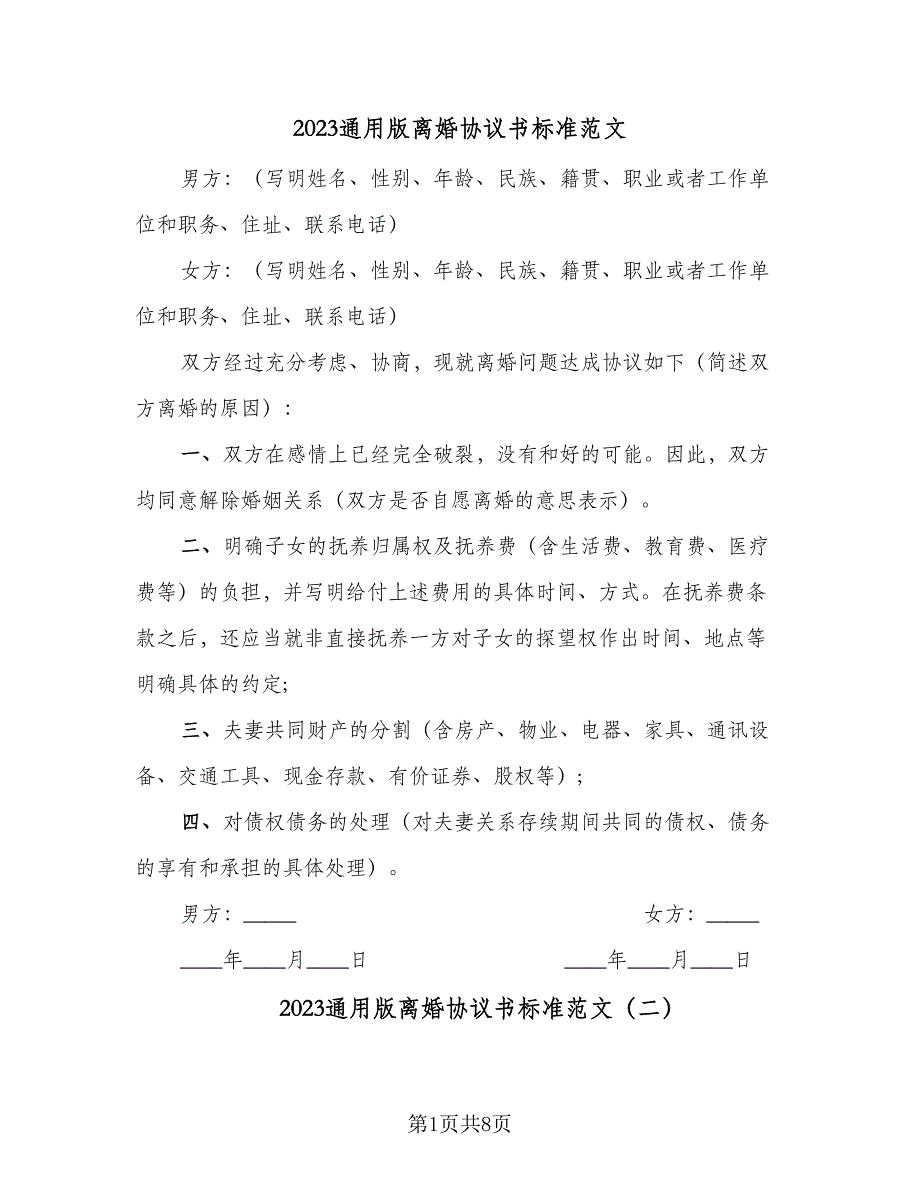 2023通用版离婚协议书标准范文
男方：（写明姓名、性别、年龄、民族、籍贯、职业或者工作单
位和职务、住址、联系电话）
女方：（写明姓名、性别、年龄、民族、籍贯、职业或者工作单
位和职务、住址、联系电话）
双方经过充分考虑、协商，现就离婚问题达成协议如下（简述双
方离婚的原因）：
一、双方在感情上已经完全破裂，没有和好的可能。因此，双方
均同意解除婚姻关系（双方是否自愿离婚的意思表示）。
二、明确子女的抚养归属权及抚养费（含生活费、教育费、医疗
费等）的负担，并写明给付上述费用的具体时间、方式。在抚养费条
款之后，还应当就非直接抚养一方对子女的探望权作出时间、地点等
明确具体的约定;
三、夫妻共同财产的分割（含房产、物业、电器、家具、通讯设
备、交通工具、现金存款、有价证券、股权等）;
四、对债权债务的处理（对夫妻关系存续期间共同的债权、债务
的享有和承担的具体处理）。
男方：_____ 女方：_____
____年____月____日 ____年____月____日
2023通用版离婚协议书标准范文（二）
第1页共8页